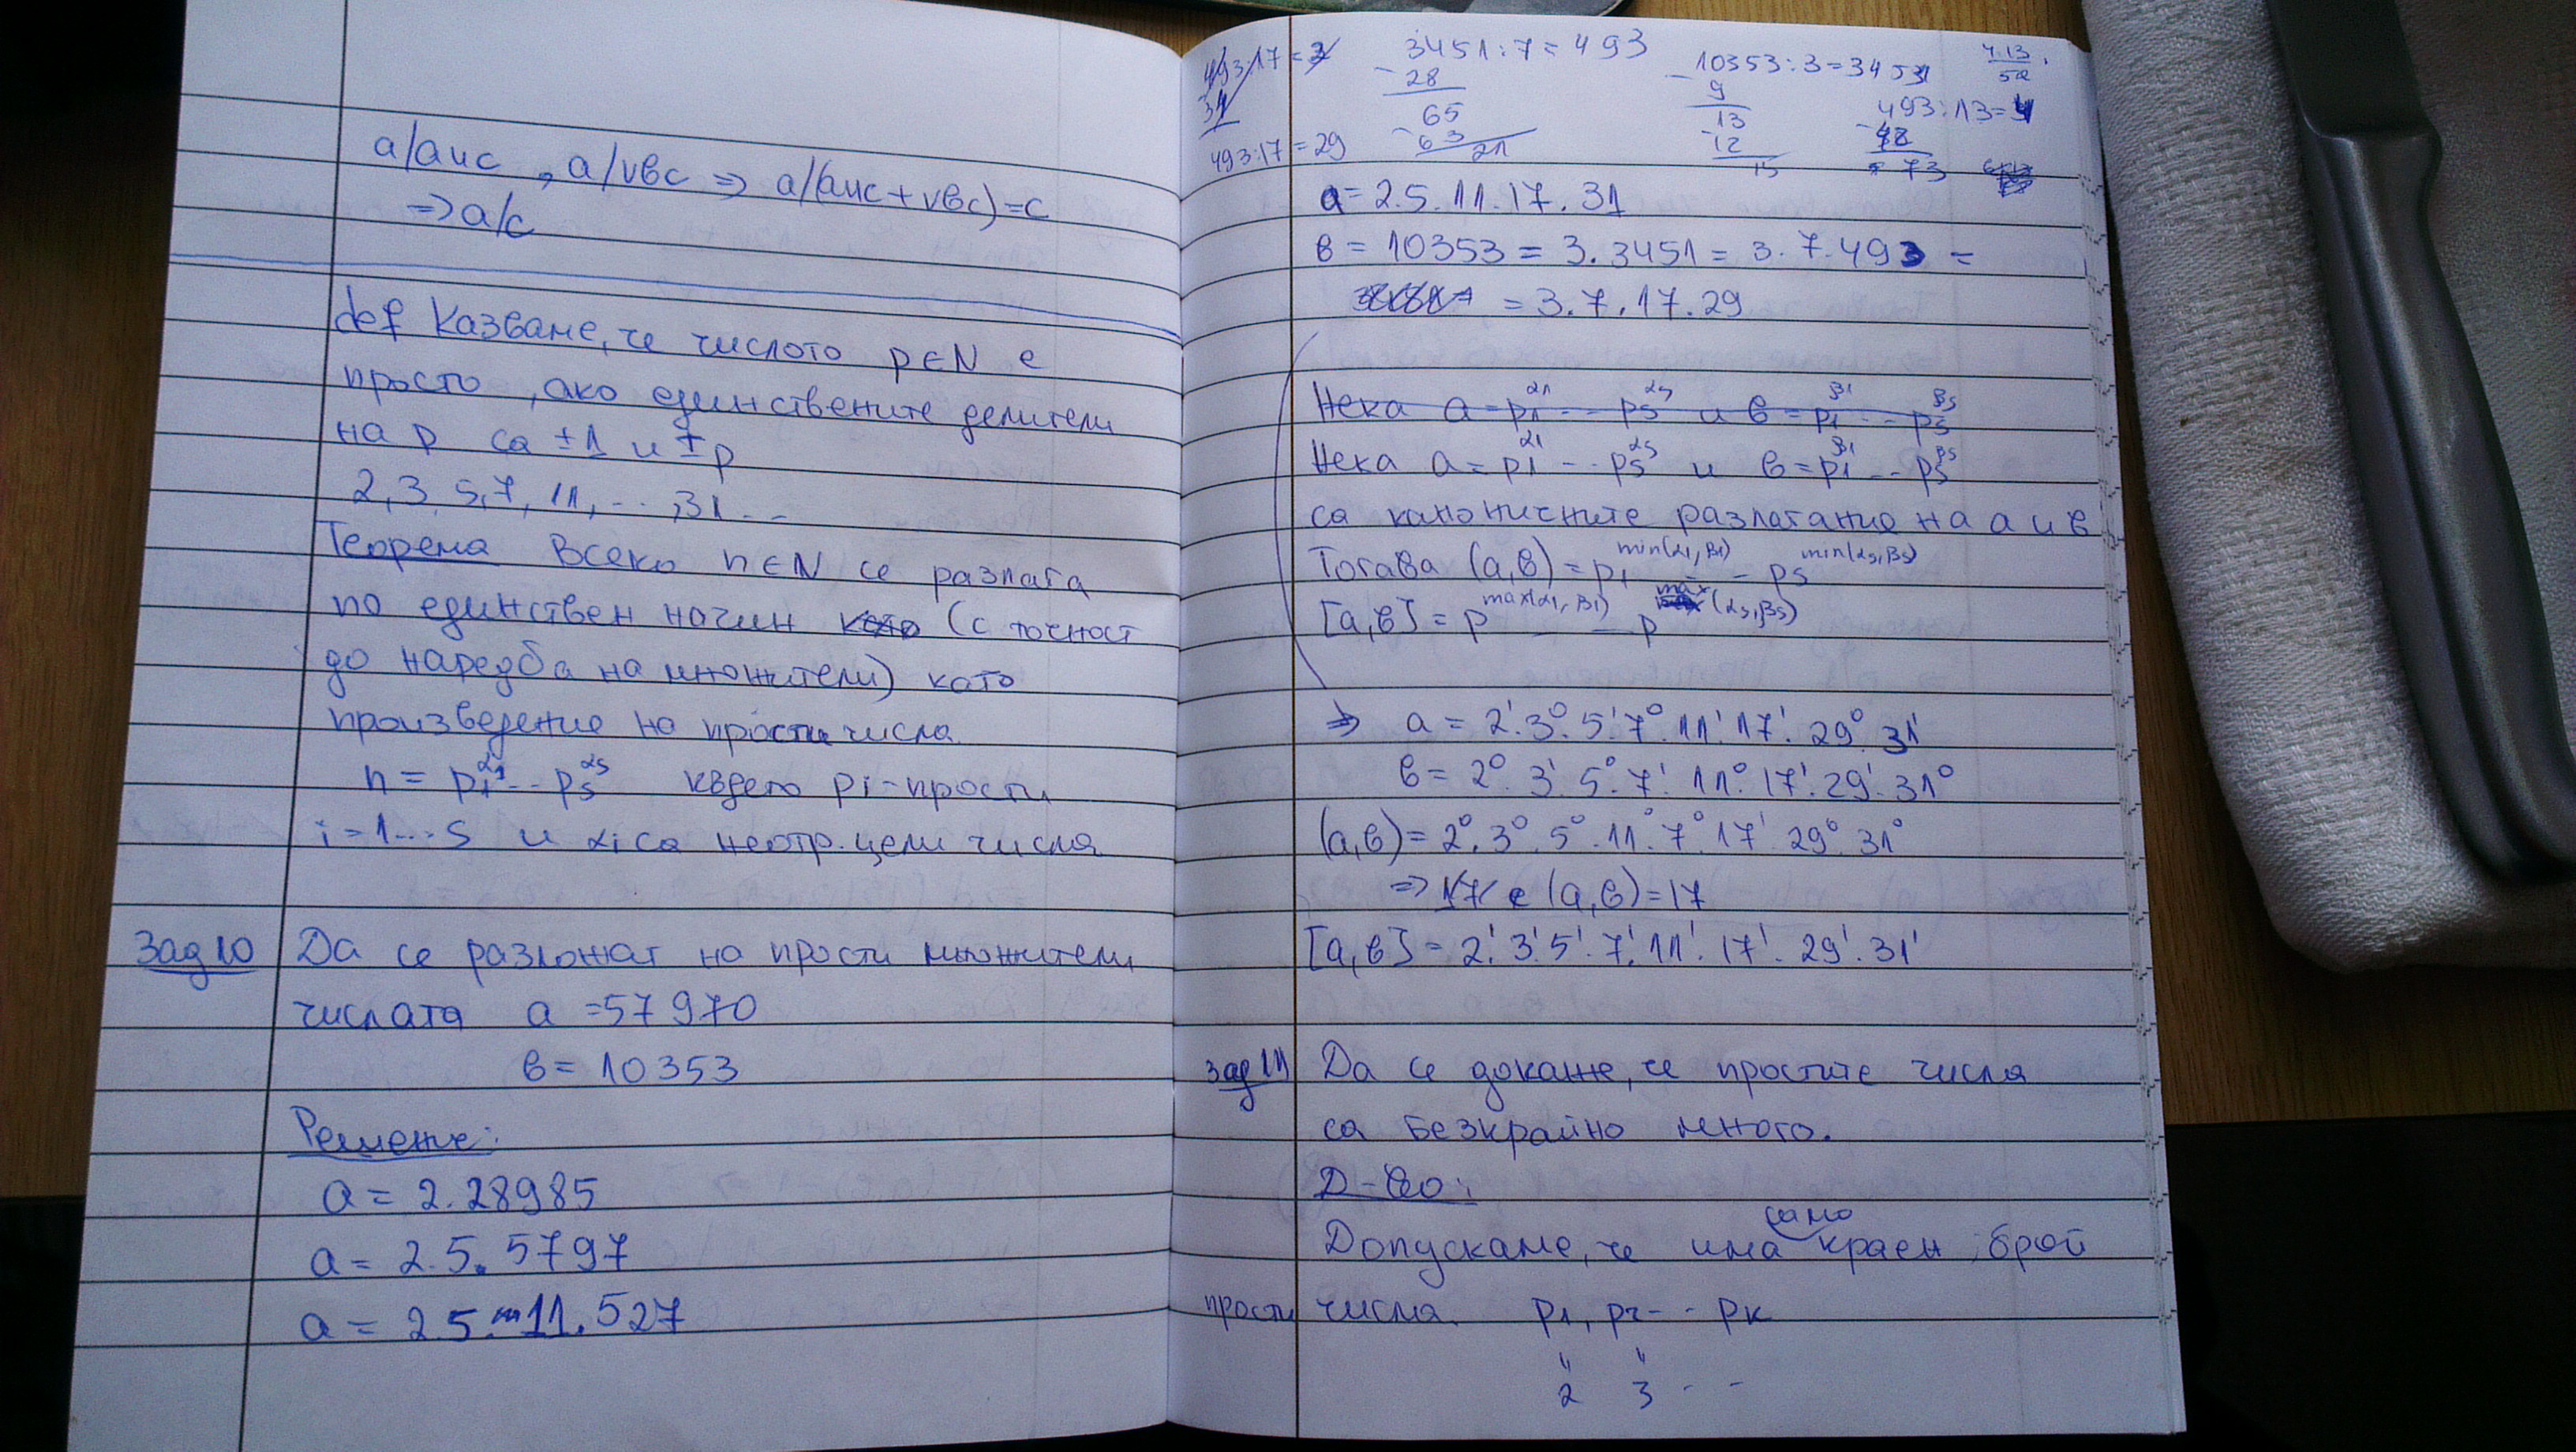 a/auc , a/vвc => a/(auc+vвc)=c
=> a/c
def Казваме, че числото p∈N е
просто, ако единствените делители
на p са ±1 и ±p
2, 3, 5, 7, 11, ..., 31...
Теорема Всеко n∈N се разлага
по единствен начин (с точност
до наредба на множители) като
произведение на прости числа
n = p1^α1 ... ps^αs където pi-прости
i=1...s и αi са неотр. цели числа
Зад 10 Да се разложат на прости множители
числата a = 57970
в = 10353
Решение:
a = 2.28985
a = 2.5.5797
a = 2.5.11.527
493:17=2
34
493:17=29
3451:7=493
- 28
65
- 63
21
10353:3=3451
- 9
13
- 12
15
4.13
52
493:13=
73
a = 2.5.11.17.31
в = 10353 = 3.3451 = 3.7.493 =
= 3.7.17.29
Нека a=p1^α1 ... ps^αs и в=p1^β1 ... ps^βs
Нека a=p1^α1 ... ps^αs и в=p1^β1 ... ps^βs
са каноничните разлагание на a и в
Тогава (a,в) = p1^min(α1,β1) ... ps^min(αs,βs)
[a,в] = p^max(α1,β1) ... p^max(αs,βs)
=> a = 2¹.3⁰.5¹.7⁰.11¹.17¹.29⁰.31¹
в = 2⁰.3¹.5⁰.7¹.11⁰.17¹.29¹.31⁰
(a,в) = 2⁰.3⁰.5⁰.11⁰.7⁰.17¹.29⁰.31⁰
=> 17 е (a,в)=17
[a,в] = 2¹.3¹.5¹.7¹.11¹.17¹.29¹.31¹
зад 11 Да се докаже, че простите числа
са безкрайно много.
Д-во:
Допускаме, че има само краен брой
прости числа. p1, p2 ... pk
" "
2 3 ...